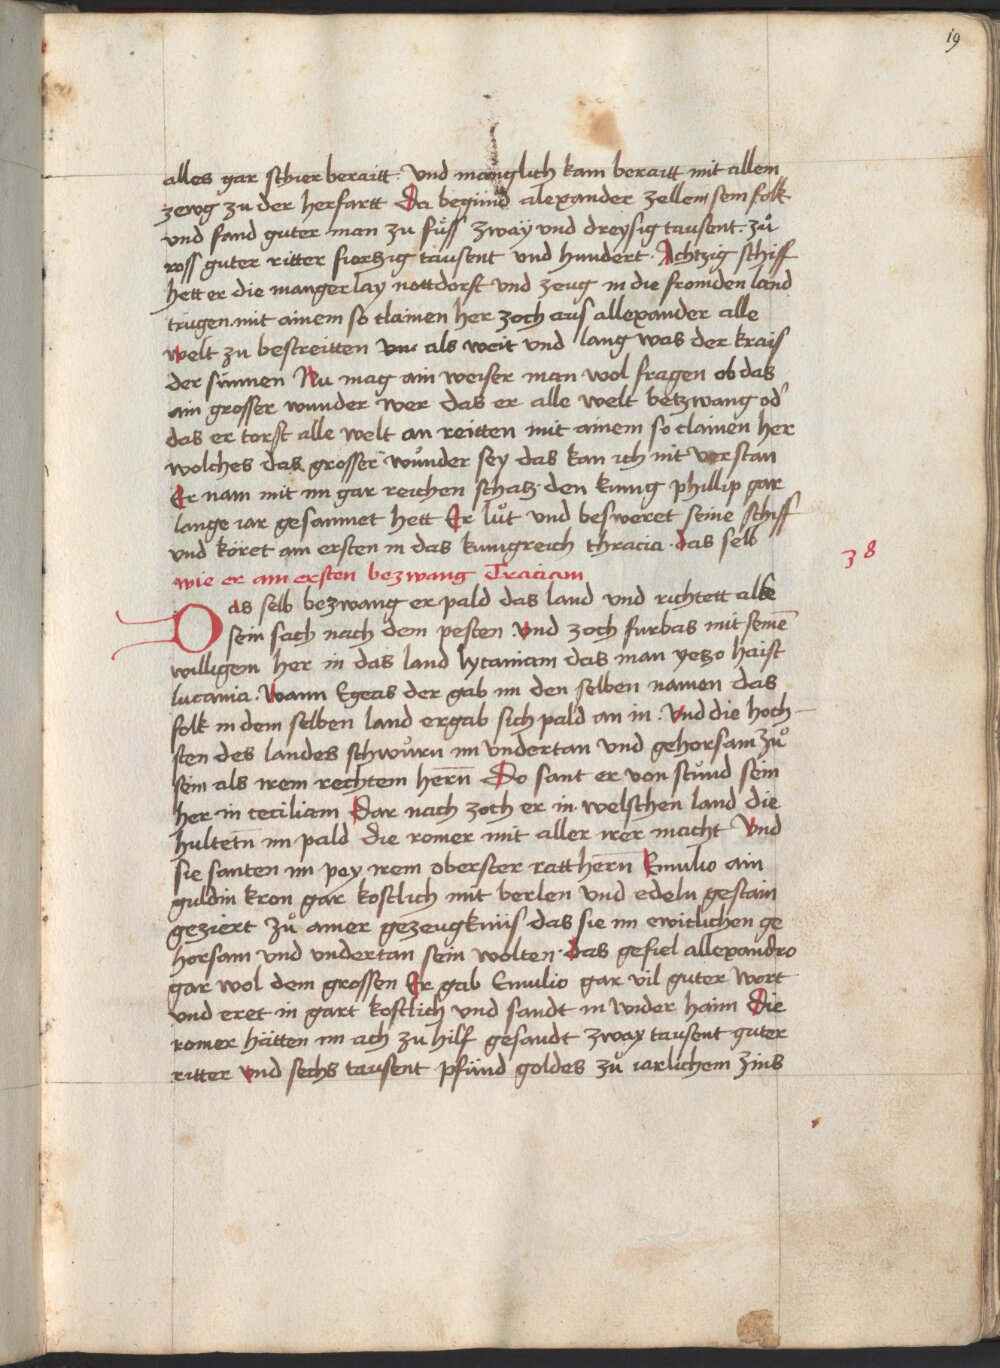 19
alles gar schier beraitt. Und mänglich kam beraitt mit allem
zewg zu der herfartt Da begund alexander zellen sein folk
und fand guter man zu fuͦss zwaÿ und dreysig tausent. zuͦ
ross guter ritter fierczig tausent und hundert. Achtzig schiff
hett er die mangerlay nottdorft und zeug in die fromden land
trugen. mit ainem so clainen her zoch aus allexander alle
welt zu bestreitten vn als weit und lang was der krais
der sunnen Nu mag ain weiser man wol fragen ob das
ain grosser wunder wer das er alle welt betzwang od'
das er torst alle welt an reitten mit ainem so clainen her
wolches das grosser wuͦnder sey das kan ich nit verstan
Er nam mit im gar reichen schatz. den kunig phillip gar
lange iar gesamnet hett Er luͦt und besweret seine schiff
und köret am ersten in das kunigreich thracia. das selb
38
wie er am ersten bezwang Traciam
Das selb bezwang er pald das land und richtett alle
sein sach nach dem pesten. Und zoch furbas mit seinē
willigem her in das land lytaniam das man yeczo haist
lucania. Wann Egeas der gab im den selben namen das
folk in dem selben land ergab sich pald an in. Und die hoch-
sten des landes schwuͦrn im undertan und gehorsam zuͦ
sein als irem rechtem herñ Do sant er von stuͦnd sein
her in ceciliam Dar nach zoch er in welschen land die
hultetñ im pald die romer mit aller irer macht Und
sie santen im pey irem oberster rattherñ Emulio ain
guldin kron gar kostlich mit berlen und edeln gestain
geziert zuͦ ainer gezeugknus das sie im ewitlichen ge
horsam und undertan sein wolten. das gefiel allexandro
gar wol dem grossen Er gab Emulio gar vil guter wort
und eret in gart kostlich und sandt in wider haim Die
romer hätten im ach zu hilf gesandt zway tausent guter
ritter und sechs tausent pfund goldes zuͦ iarlichem zins